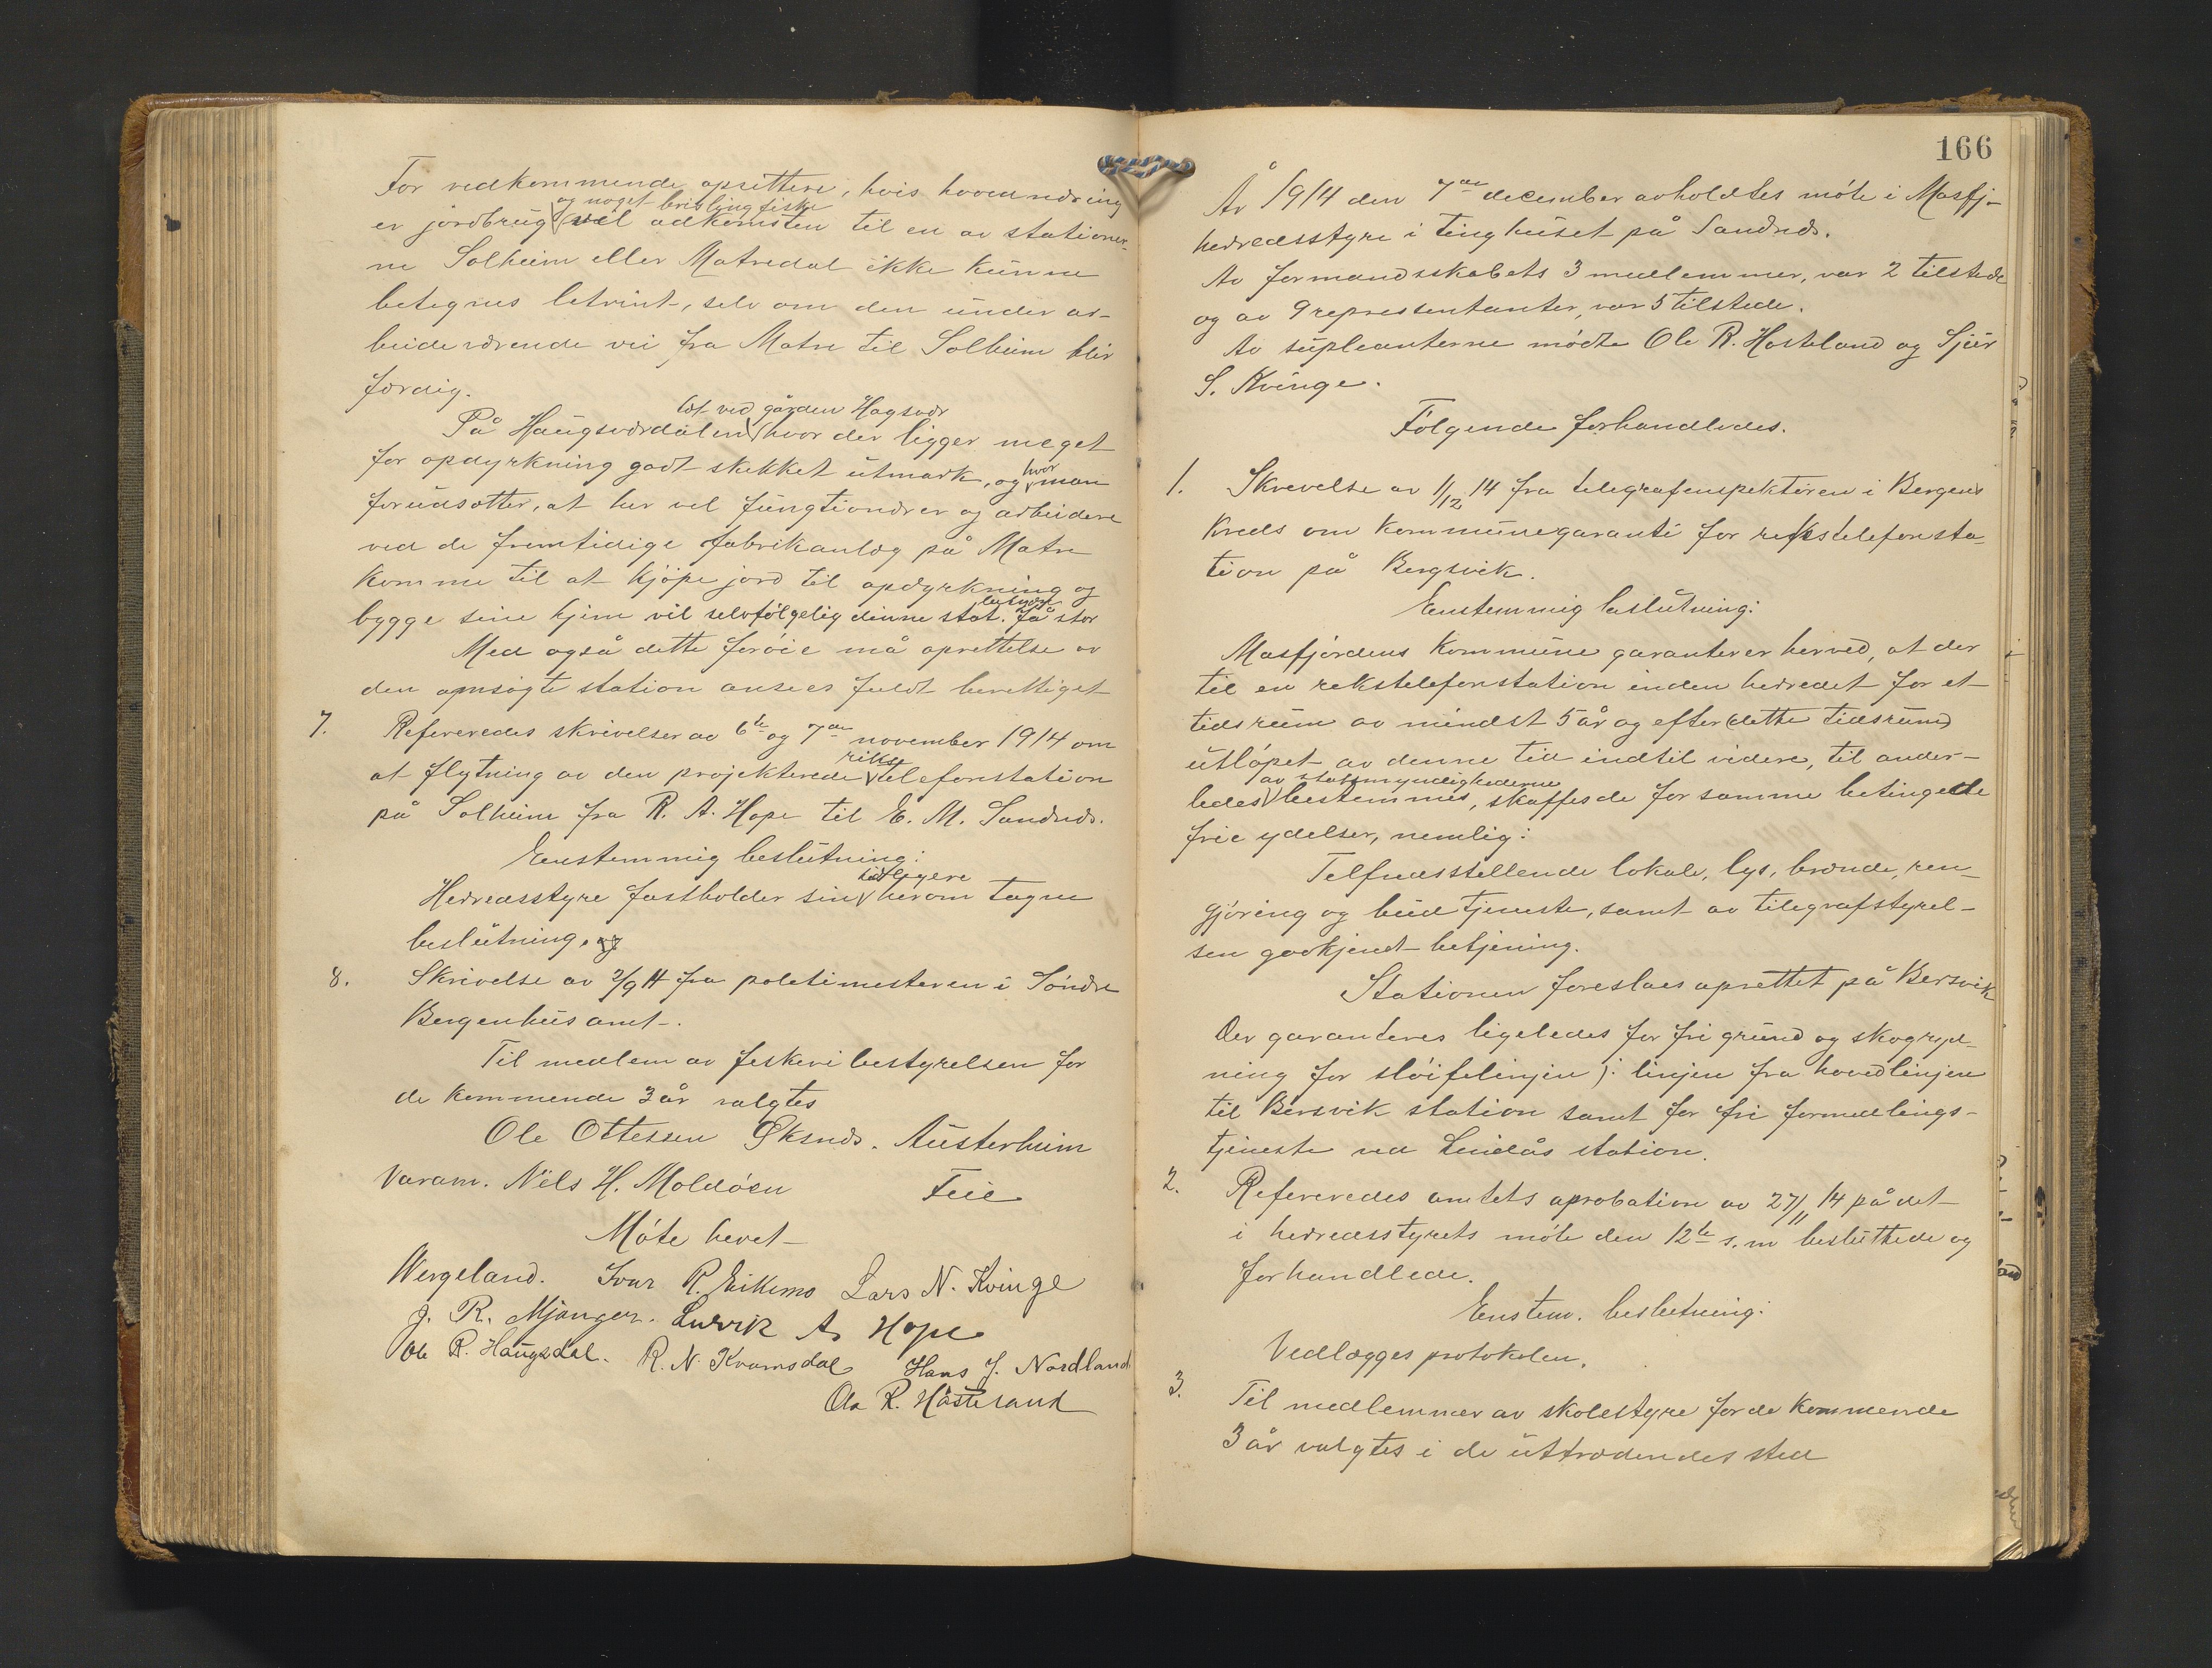 For vedkommende opsittere, hvis hovednæring
og noget brislingfiske
er jordbrug vil adkomsten til en av stationer-
ne Solheim eller Matredal ikke kunne
betegnes letvint, selv om den under ar-
beide værende vei fra Matre til Solheim blir
færdig.
tæt ved gården Hagsvær
På Haugsværdalen hvor der ligger meget
for opdyrkning godt skikket utmark, og hvor man
forudsætter, at her vel fungtionærer og arbeidere
ved de fremtidige fabrikanlæg på Matre
komme til at kjöpe jord til opdyrkning og
bygge sine hjem vil selvfölgelig denne stat. få stor
betydn.
Med også dette foröie må oprettelse av
den omsögte station ansees fuldt berettiget
7. Refereredes skrivelser av 6te og 7de november 1914 om
at flytning av den projekterede riks telefonstation
på Solheim fra R. A. Hope til E. M. Sandnæs.
Enstemmig beslutning:
Herredsstyre fastholder sin tidligere herom tagne
beslutning. og
8. Skrivelse av 2/9 14 fra politimesteren i Söndre
Bergenhus amt.
Til medlem av fiskeribestyrelsen for
de kommende 3 år valgtes
Ole Ottessen Öksnæs. Austerheim
Varam. Nils H. Moldöen Feie
Möte hevet
Wergeland. Ivar R. Eikemo Lars N. Kvinge
J. R. Mjanger. Ludvik A. Hope
Ole R. Haugsdal. R. N. Kvamsdal Hans J. Nordland
Ole R. Hosteland
166
År 1914 den 7de december avholdtes möte i Masfj-
herredsstyre i tinghuset på Sandnæs.
Av formandsskabets 3 medlemmer, var 2 tilstede
og av 9 repressentanter, var 5 tilstede.
Av supleanterne mödte Ole R. Hosteland og Sjur
S. Kvinge.
Fölgende forhandledes.
1. Skrevelse av 1/12 14 fra telegrafenspektören i Bergens
Kreds om kommunegaranti for rikstelefonsta-
tion på Bergsvik.
Enstemmig beslutning:
Masfjordens kommune garanterer herved, at der
til en rekstelefonstation inden herredet for et
tidsrum av mindst 5 år og efter (dette tidsrum)
utlöpet av denne tid indtil videre, til ander-
av statsmyndighederne
ledes bestemmes, skaffes de for samme betingede
frie ydelser, nemlig:
Telfredsstillende lokale, lys, brænde, ren-
gjöring og budtjeneste, samt av telegrafstyrel-
sen godkjendt betjening.
Stationen foreslaes oprettet på Bersvik
Der garanteres ligeledes for fri grund og skogryd-
ning for slöifelinjen ): linjen fra hovedlinjen
til Bersvik station samt for fri formidlings-
tjeneste ved Lindås station.
2. Refereredes amtets aprobation av 27/11 14 på det
i herredsstyrets möte den 12te s. m besluttede og
forhandlede.
Enstem. beslutning:
Vedlægges protokolen.
3. Til medlemmer av skolestyre for de kommende
3 år valgtes i de uttrædendes sted